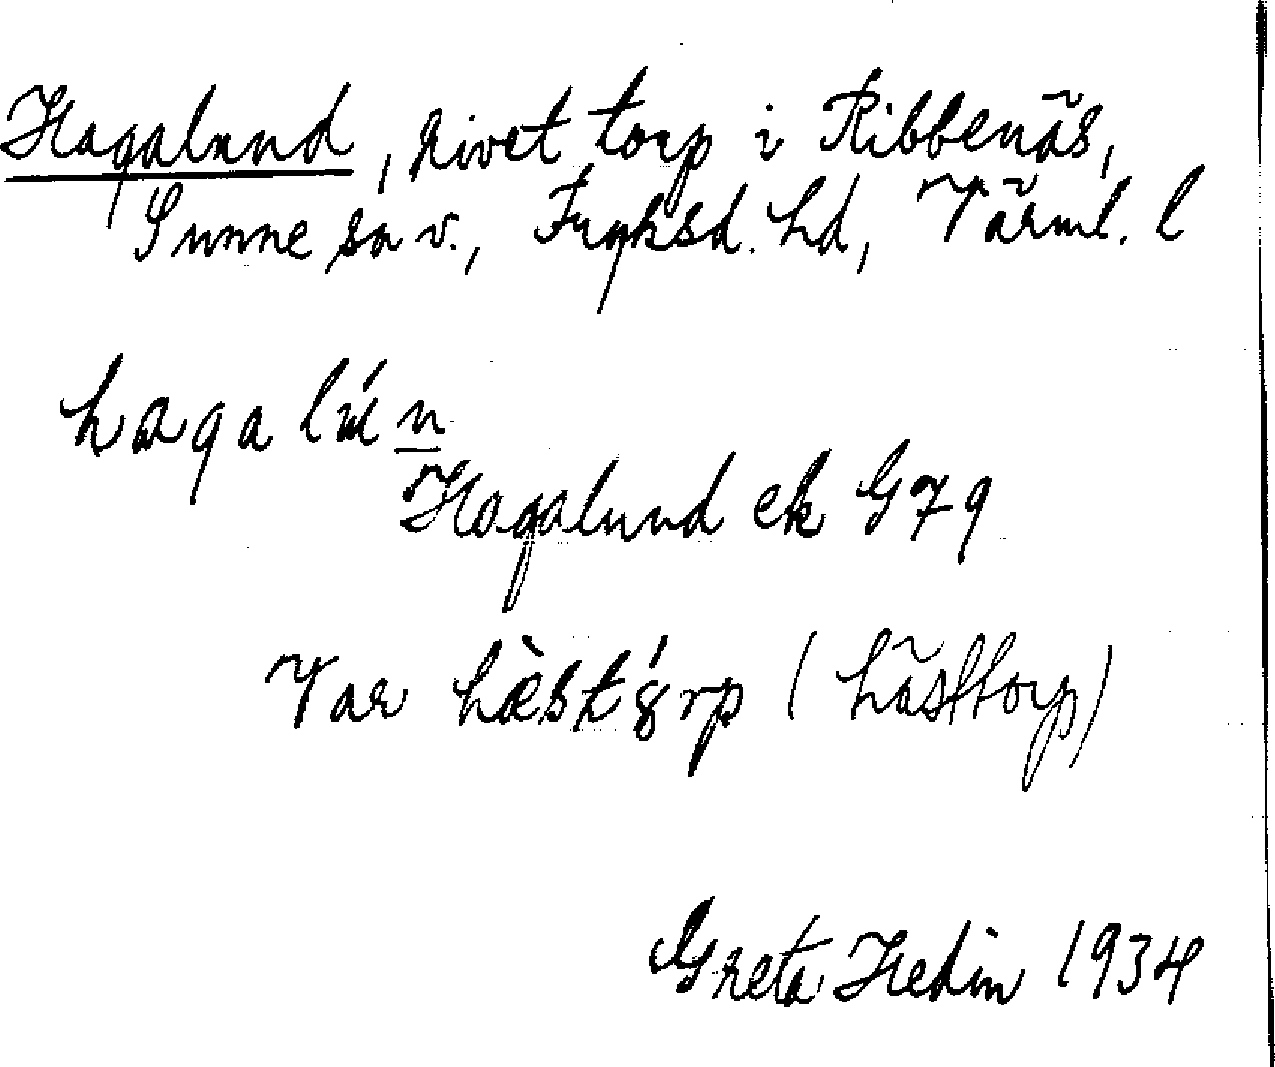 Hagalund, rivet torp i Ribbenäs,
Sunne sn v., Fryksd. hd, Värml. l
hagalún
Hagalund ek G79
Var hæ̀stt́ȣrp (hästtorp)
Greta Hedin 1934